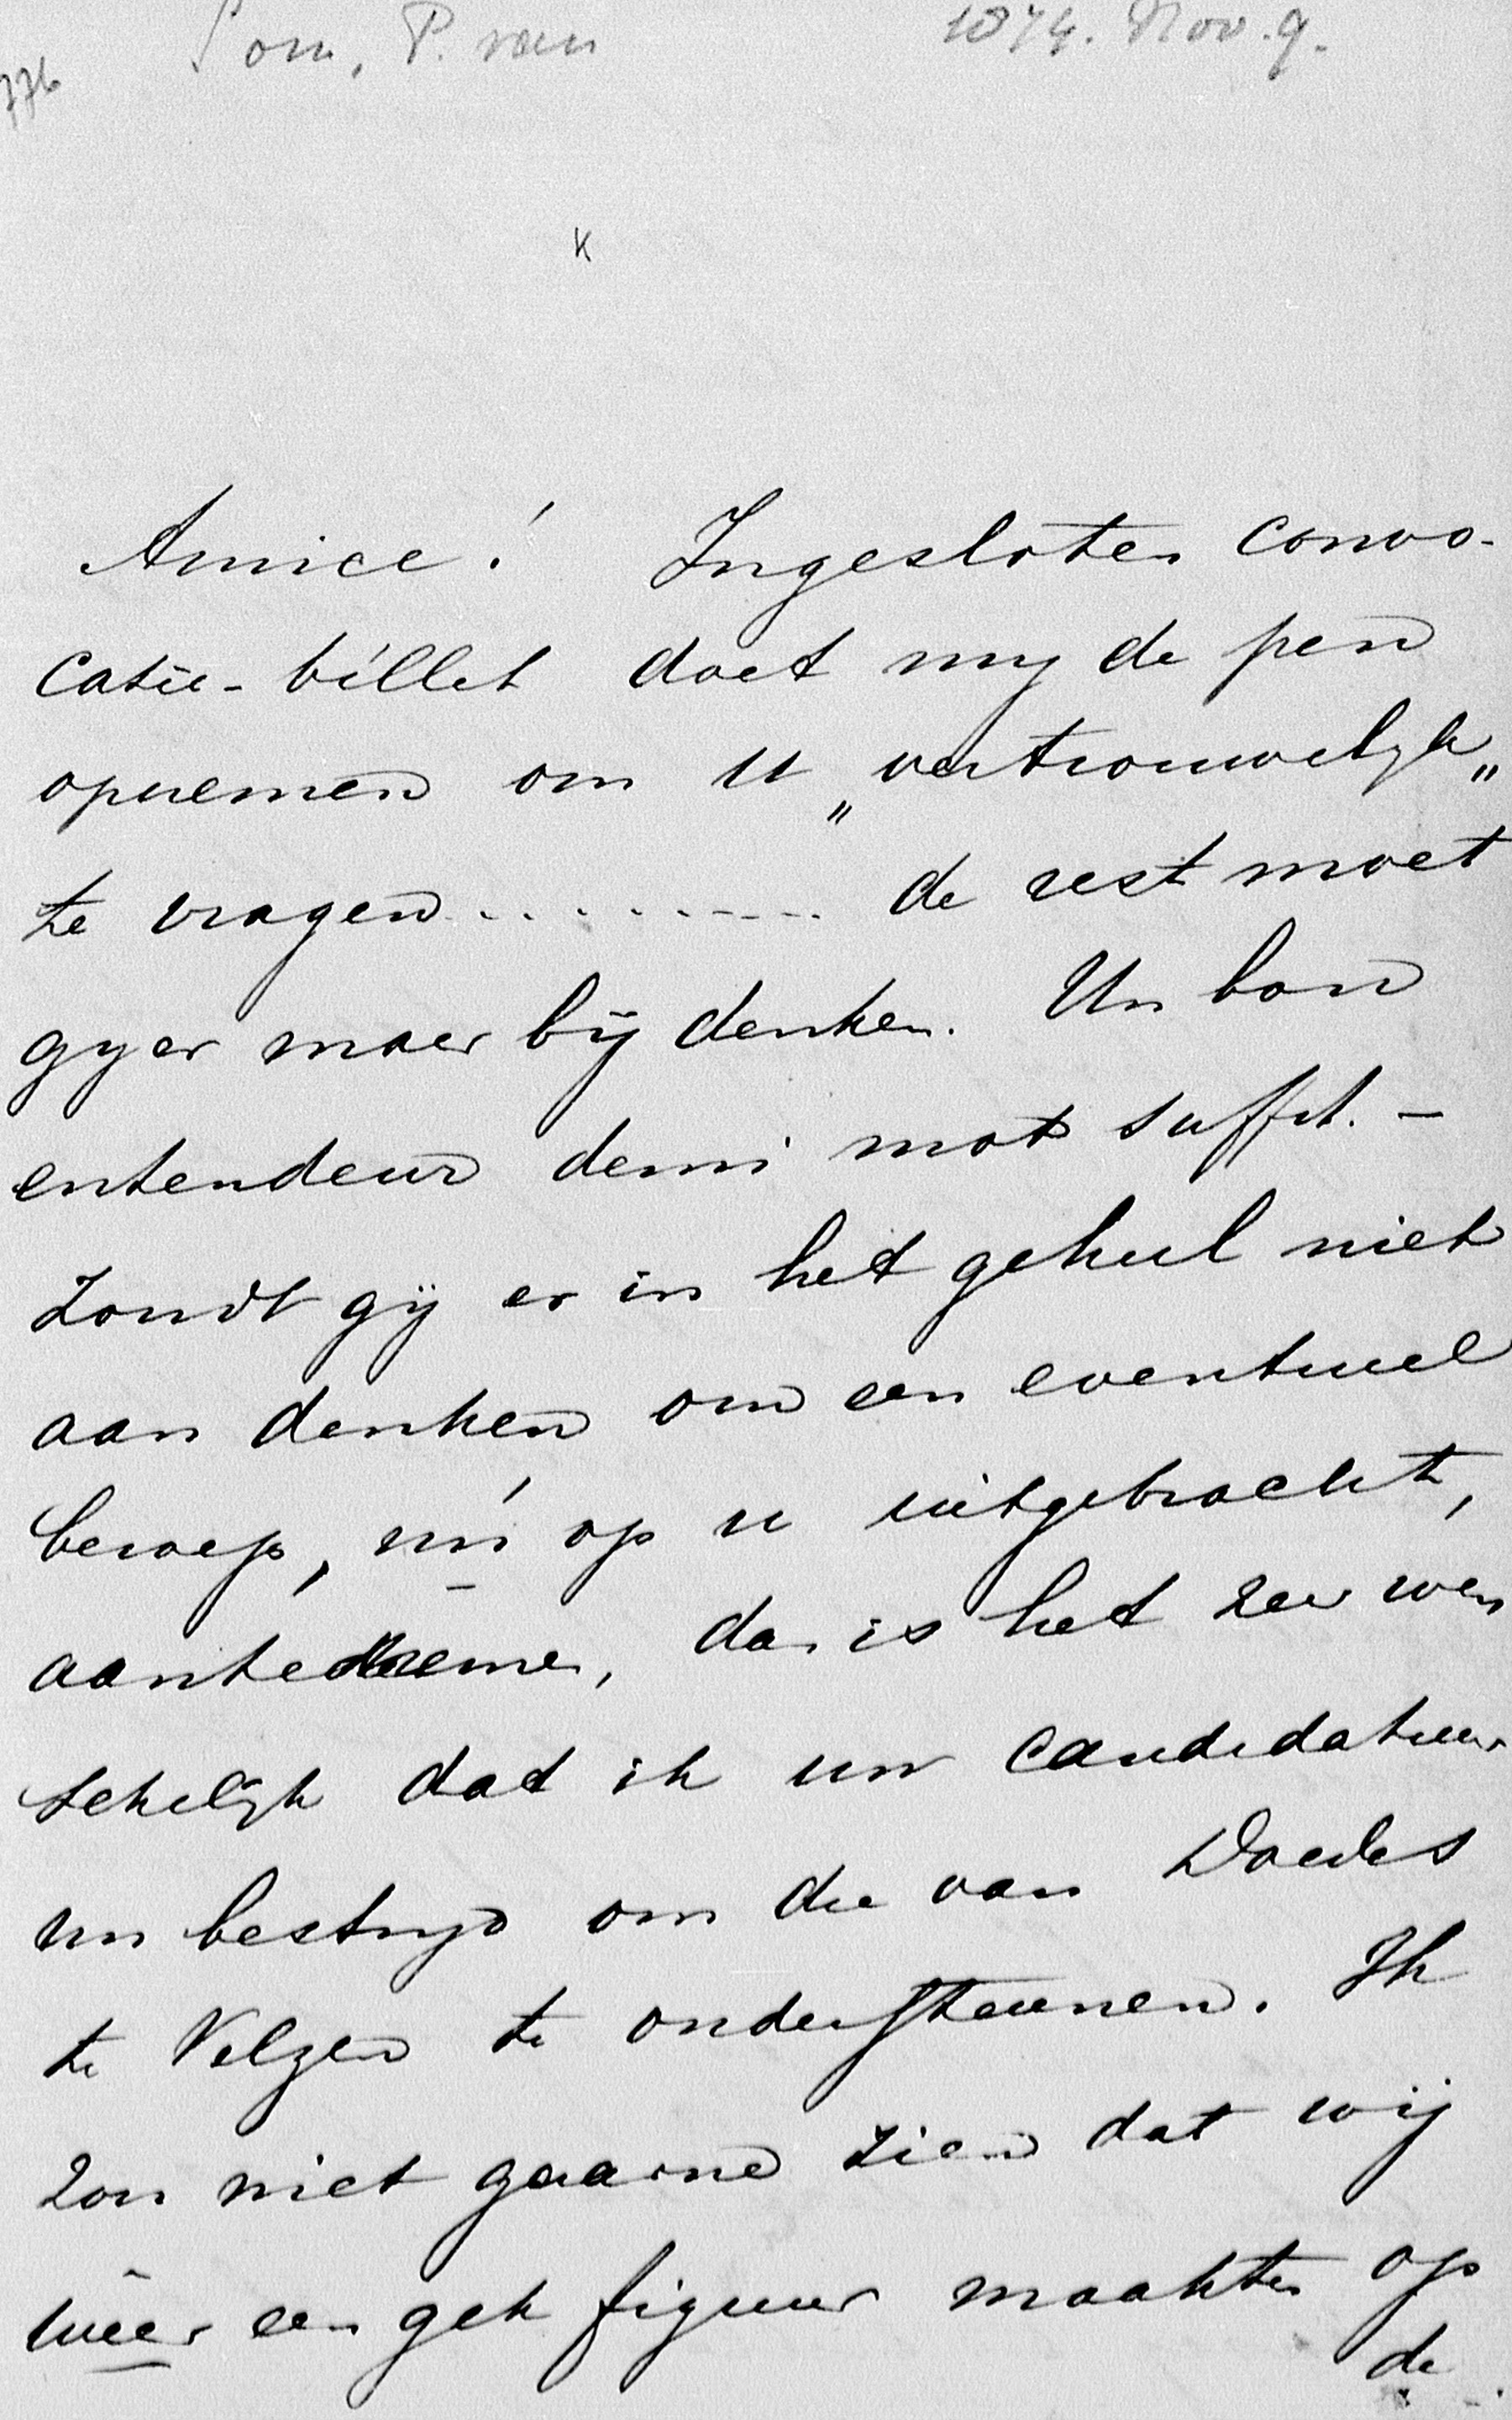 Som, P. van 1874. Nov. 9.
776
K
Amice! Ingesloten convo-
catie-billet doet my de pen
opnemen om u „vertrouwelyk„
te vragen.......... de rest moet
gy er maar bij denken. Un bon
entendeur demi mot suffit. –
Zoudt gij er in het geheel niet
aan denken om een eventueel
beroep, nú op u uitgebracht,
aantenemen, dan is het zeer wen
schelijk dat ik uw candidatuur
nu bestryd om die van Doedes
te Velzen te ondersteunen. Ik
zou niet gaarne zien dat wij
wéer een gek figuur maakten op
de